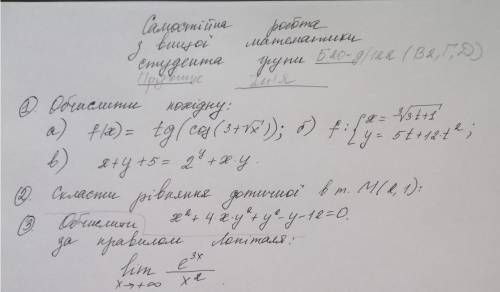 Самостійна робота
з вищої математики
студента групи Б20-д/122 (В2, Г, Д)
1. Обчислити похідну:
а) f(x) = tg(cos(3+√x)); б) f: { x = ∛3t+1 y = 5t+12t² ;
в) x+y+5 = 2^y + x·y.
2. Скласти рівняння дотичної в т. M(2,1):
x²+4x·y²+y²-y-12=0.
3. Обчислити
за правилом Лопіталя:
lim x→+∞ e^3x / x²